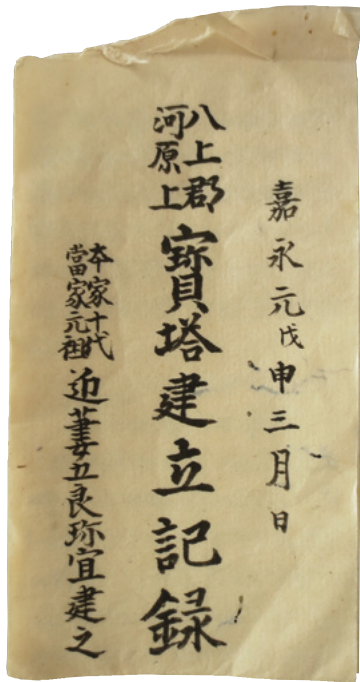 嘉永元戊申三月日
八上郡
河原上
寳塔建立記録
本家十代
當家元祖
近藤五良弥宜建之